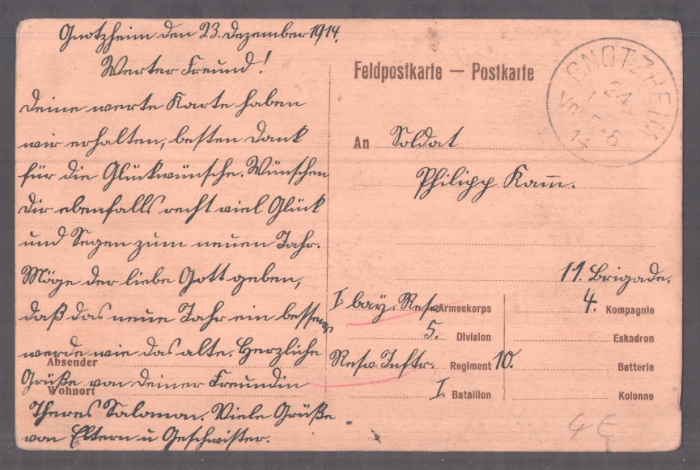 Gnotzheim den 23. Dezember 1914.
Werter Freund!
Deine werte Karte haben
wir erhalten, besten Dank
für die Glückwünsche. Wünschen
Dir ebenfalls recht viel Glück
und Segen zum neuen Jahr.
Möge der liebe Gott geben,
daß das neue Jahr ein besseres
werde wie das alte. Herzliche
Absender
Grüße von deiner Freundin
Wohnort
Theres Salomon. Viele Grüße
von Eltern u Geschwister.
Feldpostkarte — Postkarte
GNOTZHEIM
24
14
An Soldat
Philipp Kam̅.
11. Brigade.
I bay. Resv. Armeekorps
4. Kompagnie
5. Division
Eskadron
Resv. Inftr. Regiment 10.
Batterie
I. Bataillon
Kolonne
4 €